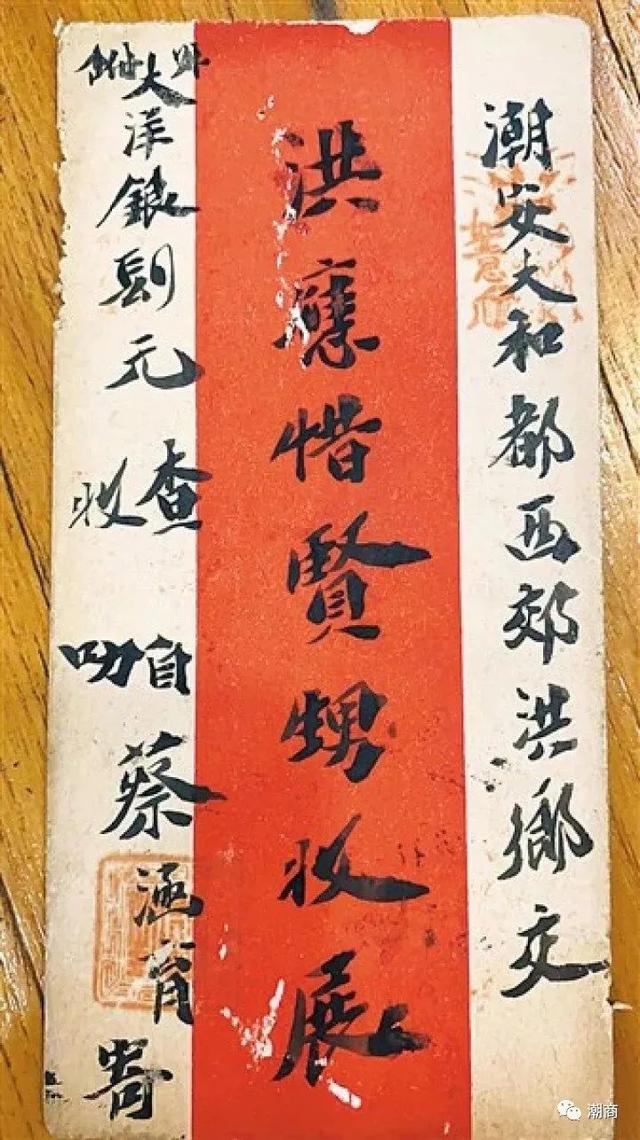 潮安大和都西郊洪鄉交
洪應惜賢甥收展
大洋銀元查收
自叻蔡涵育寄
潮商